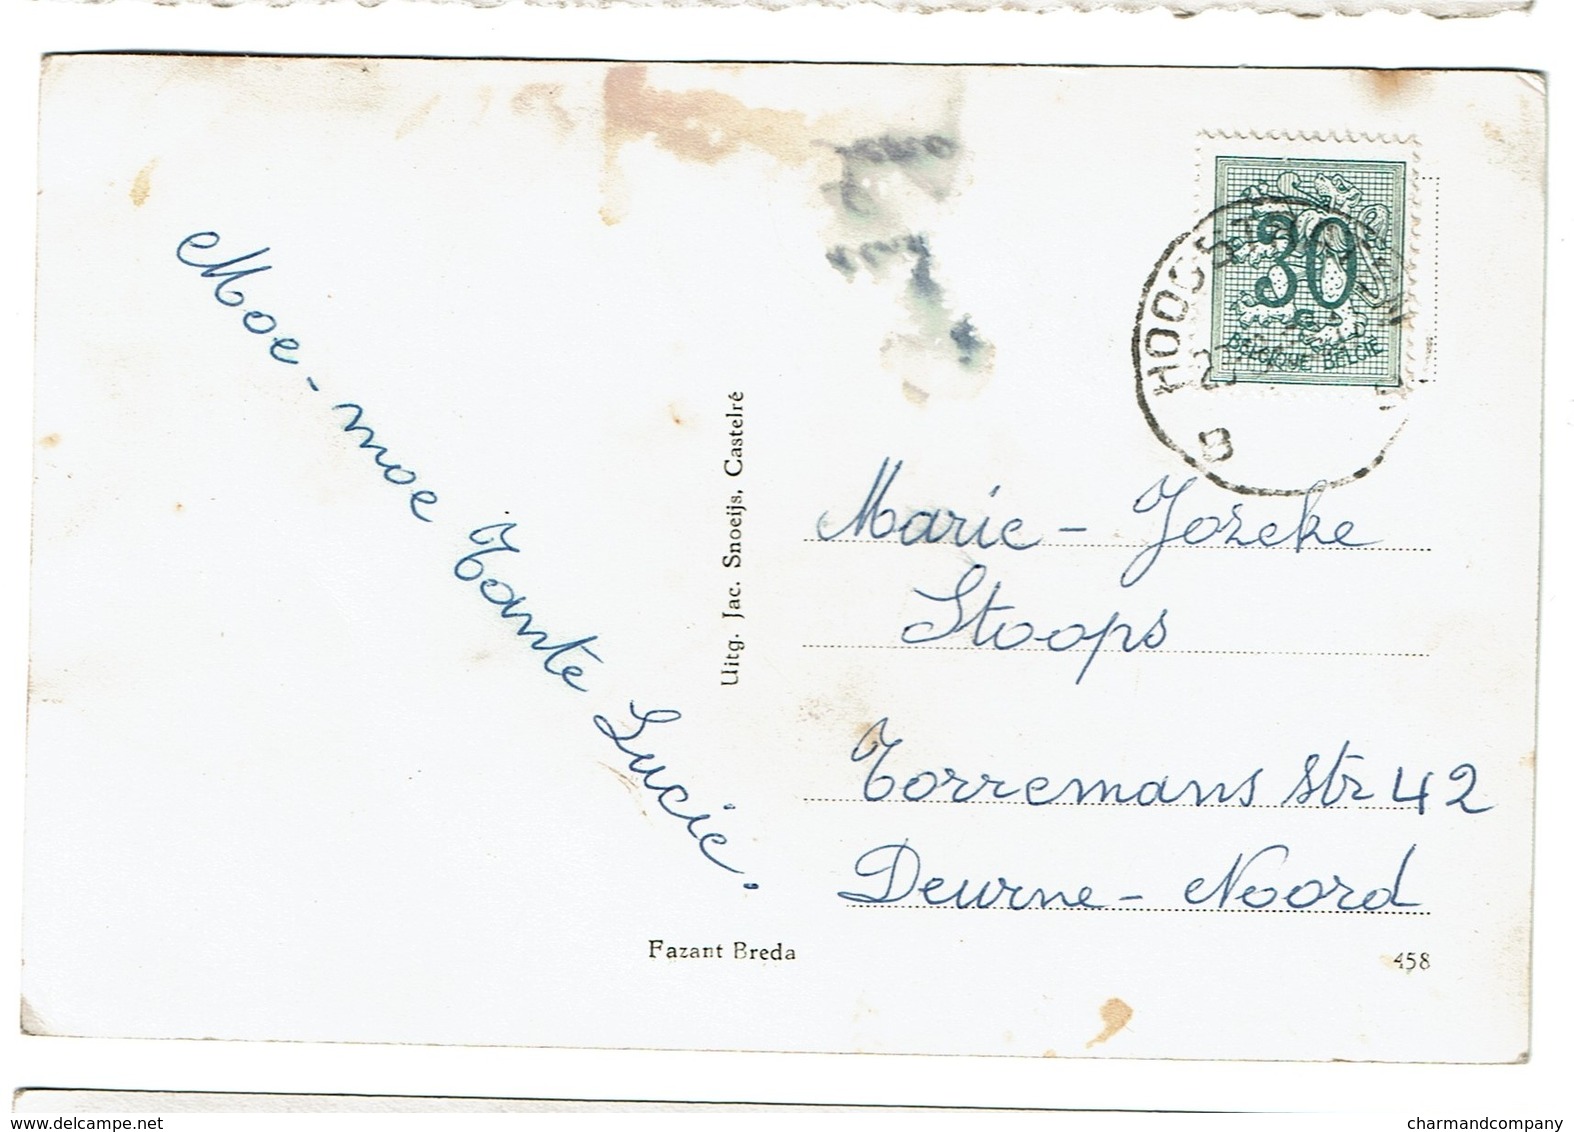 Moe-moe Tante Lucie.
Uitg. Jac. Snoeijs, Castelré
30
BELGIQUE BELGIË
B
Marie-Jozeke
Stoops
Torremans str 42
Deurne-Noord
Fazant Breda
458
delcampe.net
charmandcompany